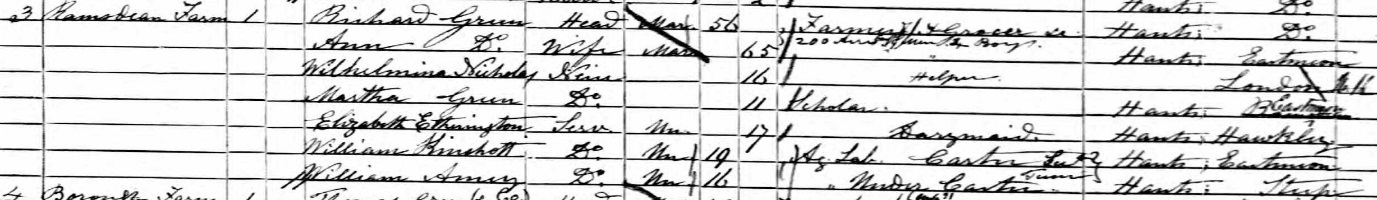 Hants; Do.
3 Ramsdean Farm 1 Richard Green Head Mar 56 Farmer & Grocer Hants; Do.
Ann Do. Wife Mar 65 200 Acres Boys. Hants; Eastmeon
Wilhelmina Nicholas Niece 16 Helper. London
Martha Green Do. 11 Scholar. Hants
Elizabeth Etherington Serv Un 17 Dairymaid Hants; Hawkley
William Kinshott Do. Un 19 Ag. Lab. Carter Hants; Eastmeon
William Amey Do. Un 16 " Under Carter. Hants; Steep
4 Farm 1